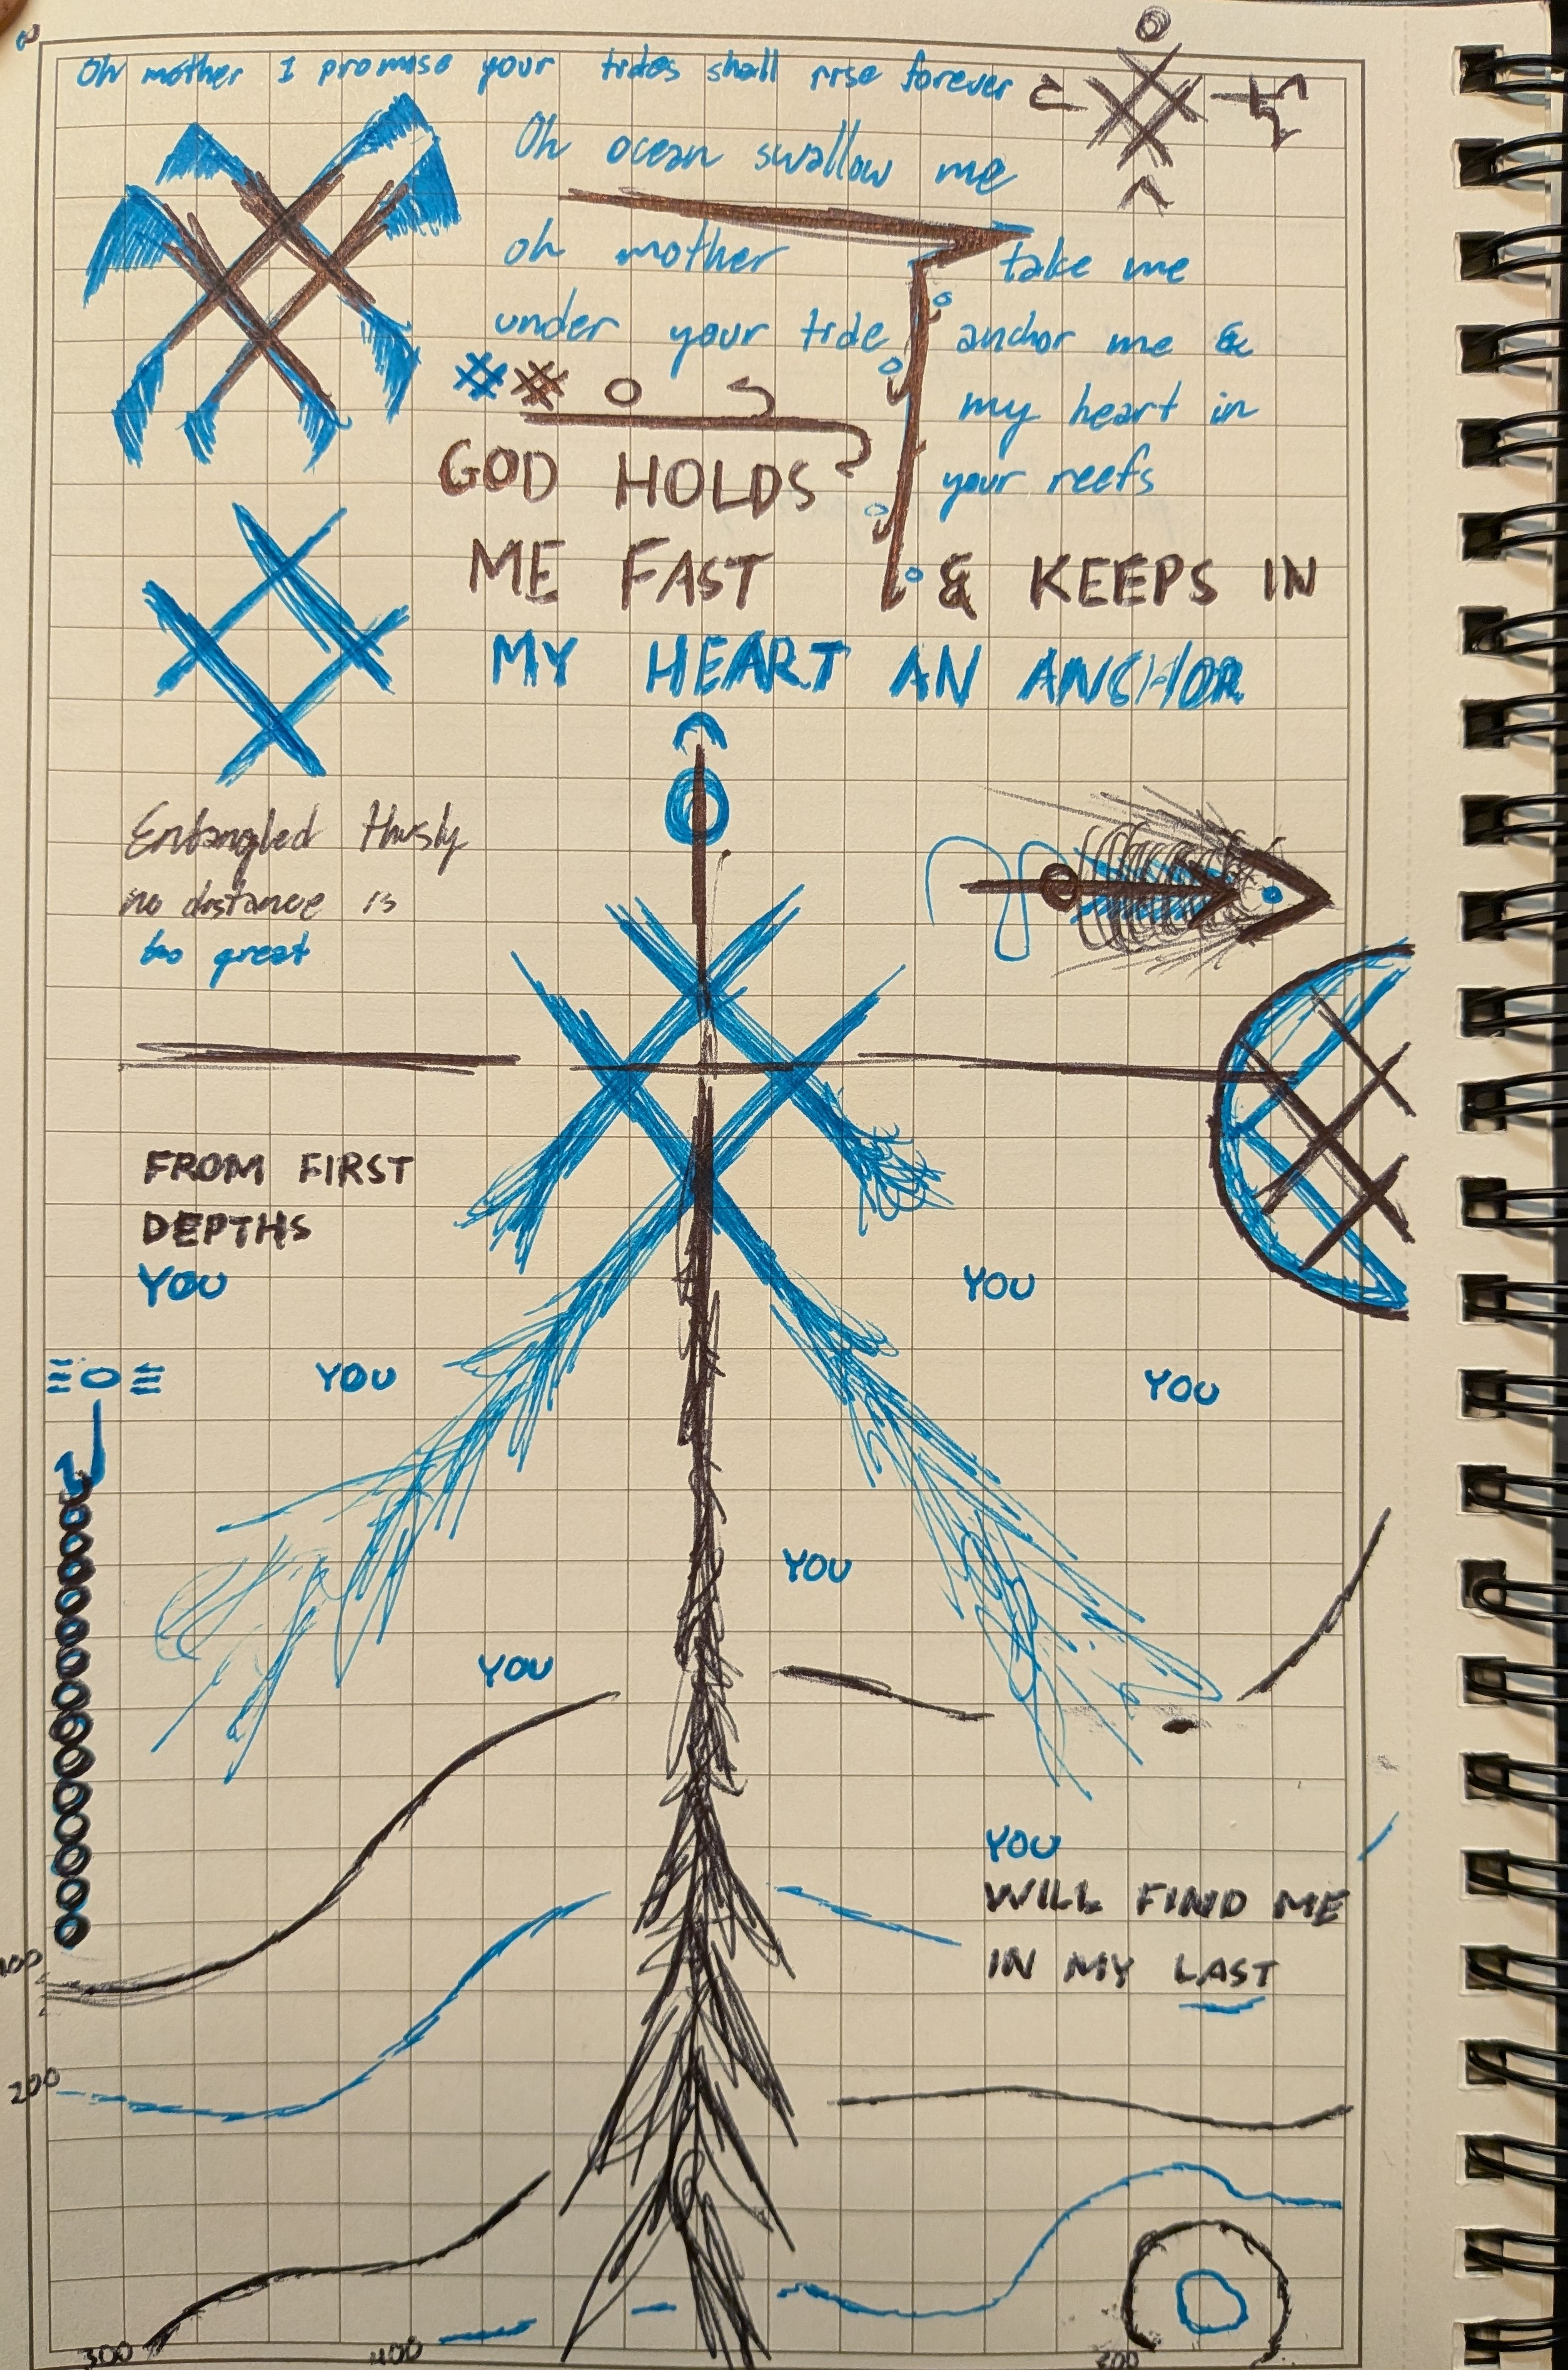 Oh mother I promise your tides shall rise forever
Oh ocean swallow me
oh mother take me
under your tide anchor me &
my heart in
your reefs
GOD HOLDS
ME FAST & KEEPS IN
MY HEART AN ANCHOR
Entangled thusly
no distance is
too great
FROM FIRST
DEPTHS
YOU
YOU
YOU
YOU
YOU
YOU
YOU
WILL FIND ME
IN MY LAST
100
200
300 400